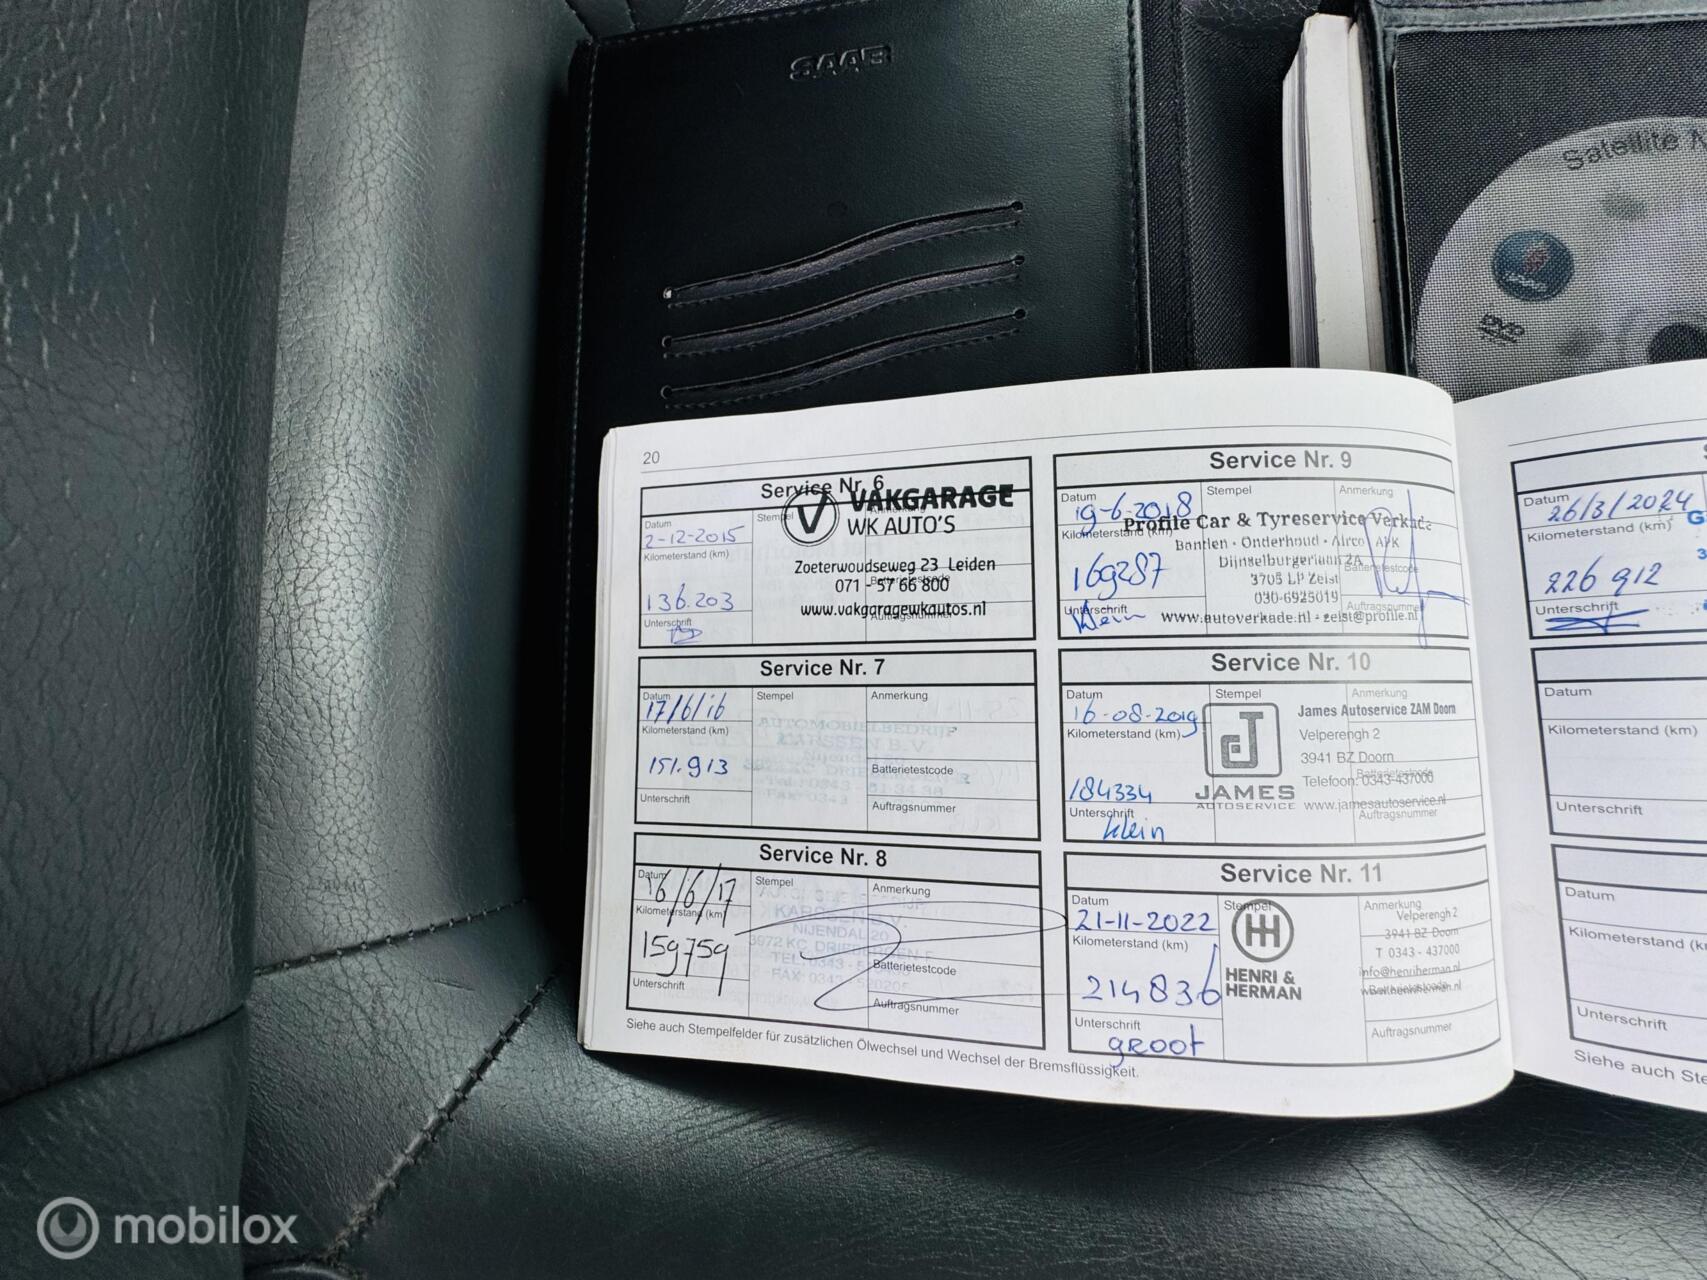 SAAB
Satellite
DVD
20
Service Nr. 6
Datum
2-12-2015
Kilometerstand (km)
136.203
Unterschrift
VAKGARAGE
WK AUTO'S
Zoeterwoudseweg 23 Leiden
071 - 57 66 800
www.vakgaragewkautos.nl
Service Nr. 7
Datum
17/6/16
Kilometerstand (km)
151.913
Unterschrift
Stempel
Anmerkung
AUTOMOBIELBEDRIJF
KARSSEN B.V.
Batterietestcode
Auftragsnummer
Service Nr. 8
Datum
16/6/17
Kilometerstand (km)
159759
Unterschrift
Stempel
Anmerkung
NIJENDAL 20
3972 KC DRIEBERGEN
Batterietestcode
Auftragsnummer
Siehe auch Stempelfelder für zusätzlichen Ölwechsel und Wechsel der Bremsflüssigkeit.
Service Nr. 9
Datum
19-6-2018
Kilometerstand (km)
169287
Unterschrift
Klein
Stempel
Anmerkung
Profile Car & Tyreservice Verkade
Banden - Onderhoud - Airco - APK
Dijnselburgerlaan 2A
3705 LP Zeist
030-6925019
www.autoverkade.nl - zeist@profile.nl
Batterietestcode
Auftragsnummer
Service Nr. 10
Datum
16-08-2019
Kilometerstand (km)
184334
Unterschrift
Klein
Stempel
JAMES
AUTOSERVICE
Anmerkung
James Autoservice ZAM Doorn
Velperengh 2
3941 BZ Doorn
Telefoon: 0343-437000
www.jamesautoservice.nl
Auftragsnummer
Service Nr. 11
Datum
21-11-2022
Kilometerstand (km)
214836
Unterschrift
GROOT
Stempel
HENRI &
HERMAN
Anmerkung
Velperengh 2
3941 BZ Doorn
T 0343 - 437000
info@henriherman.nl
Auftragsnummer
Datum
26/3/2024
Kilometerstand (km)
226 912
Unterschrift
Datum
Kilometerstand (km)
Unterschrift
Datum
Unterschrift
Siehe auch
mobilox